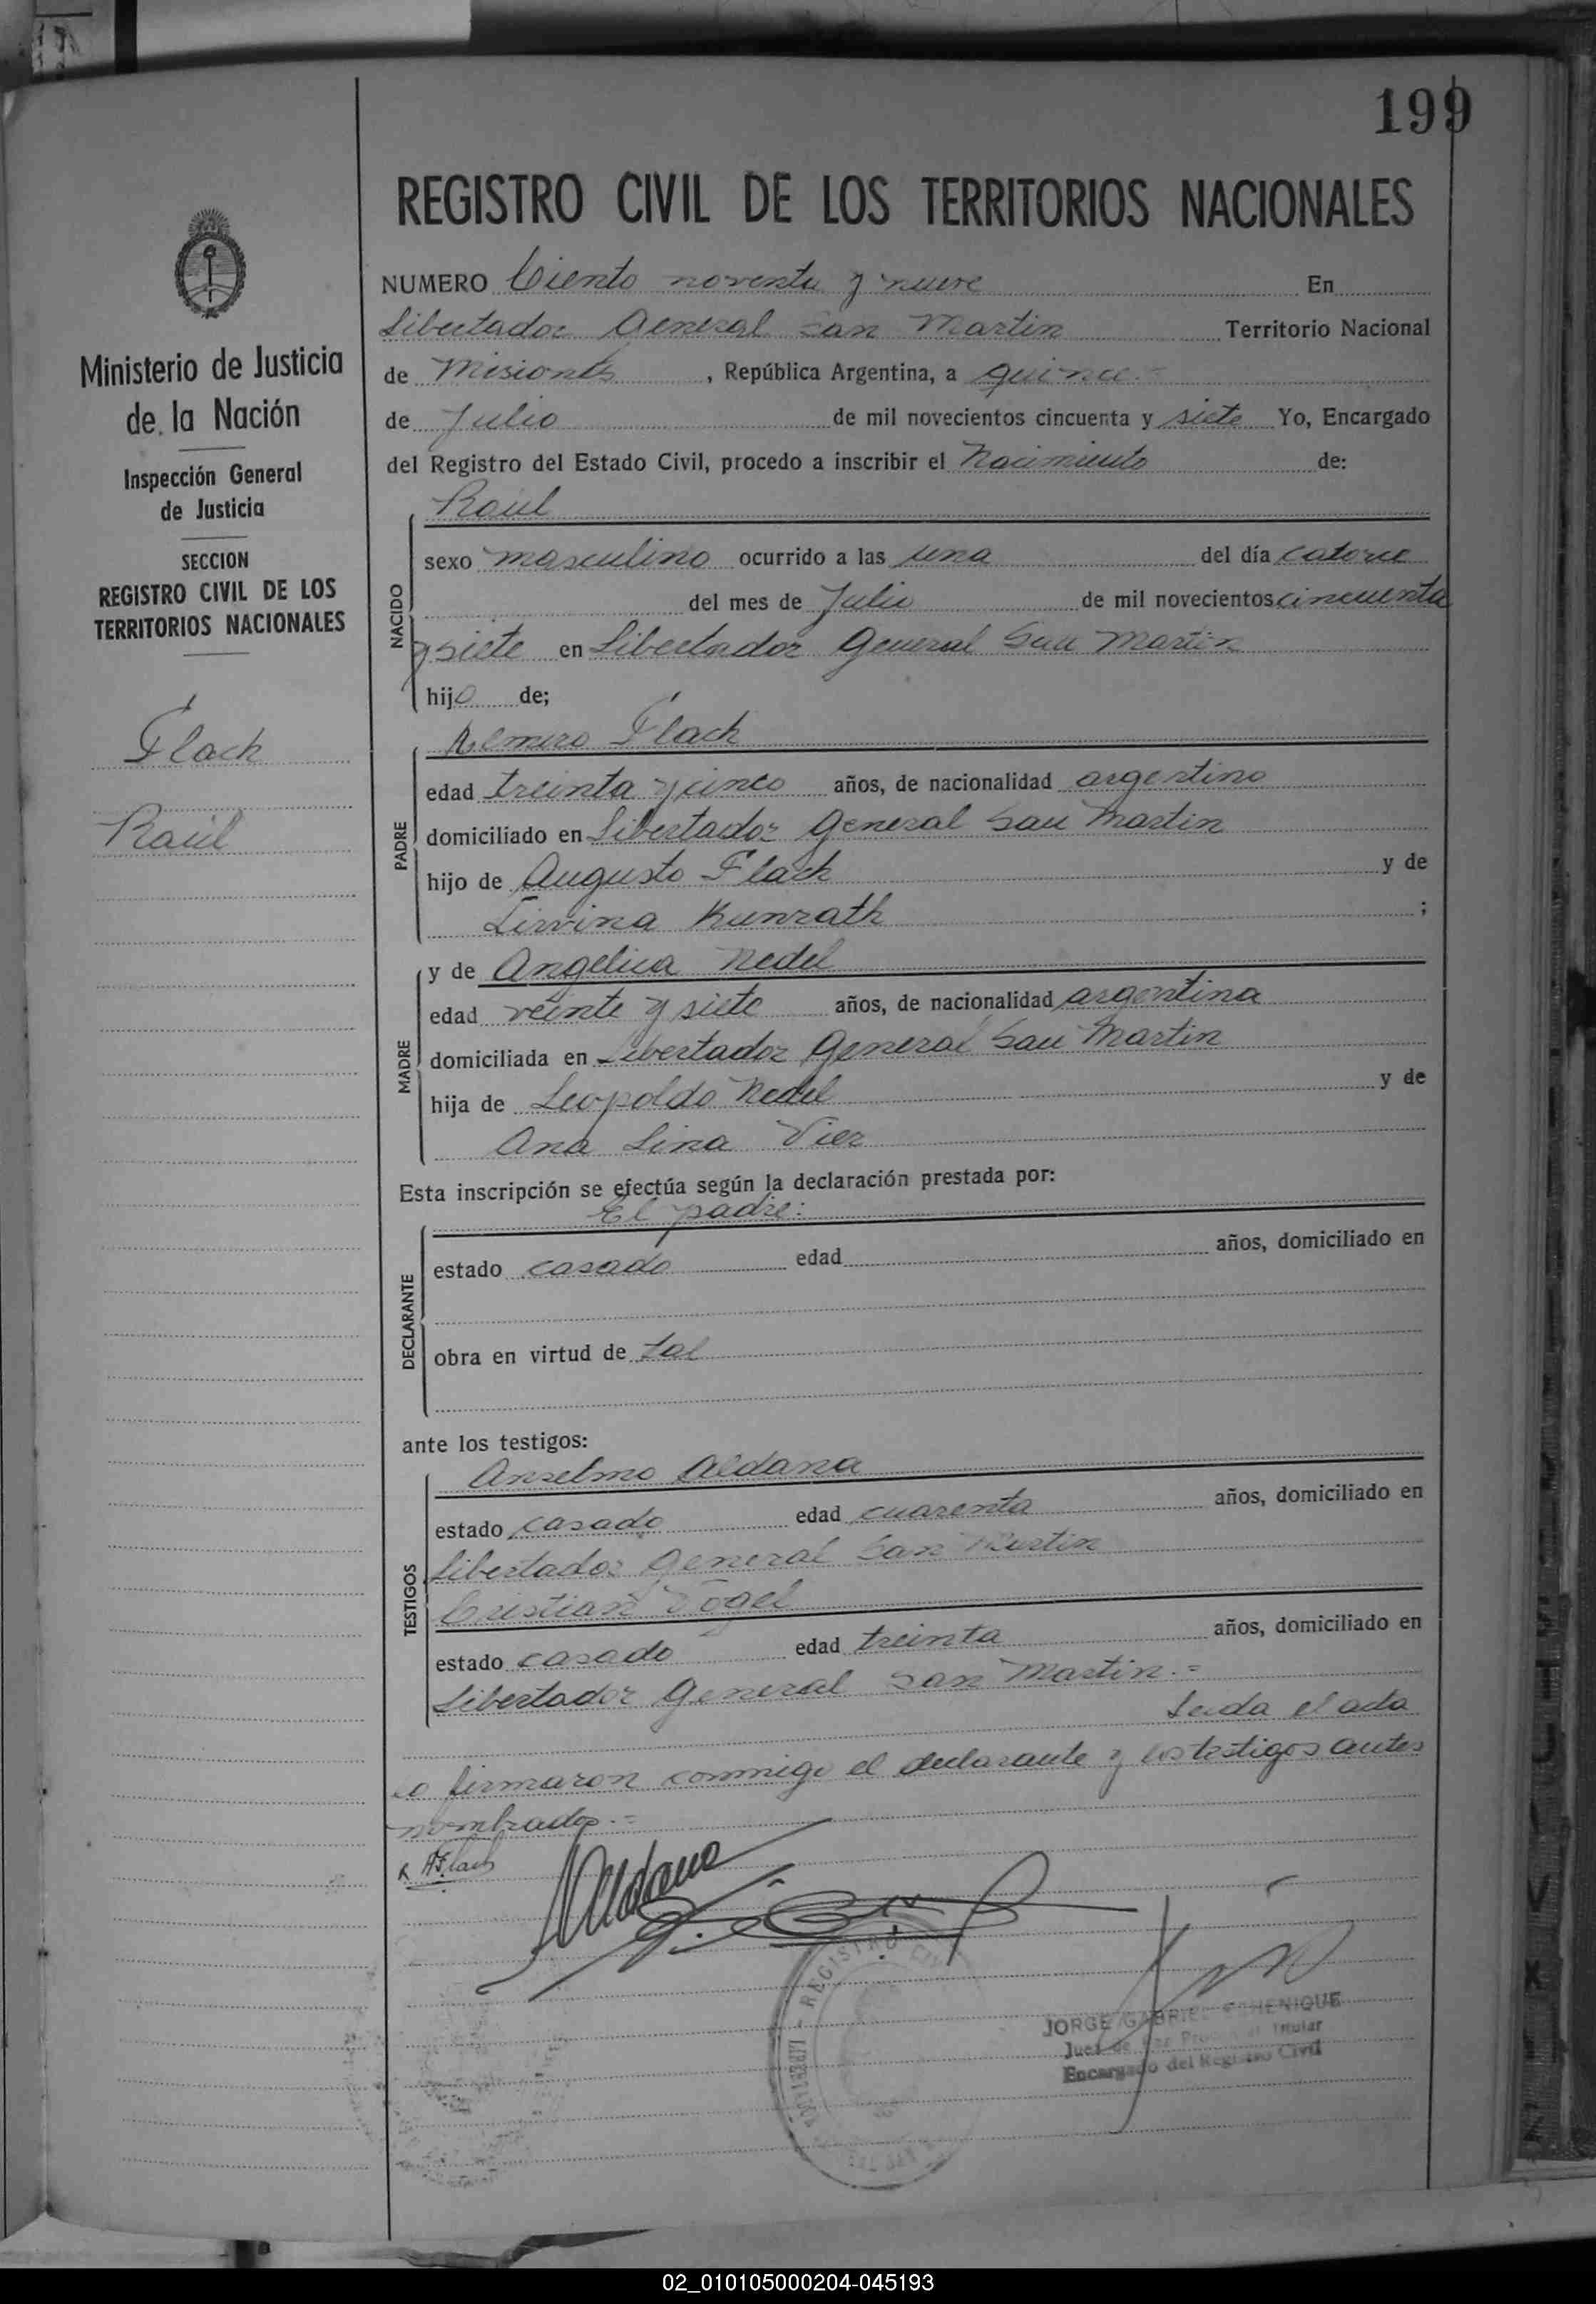 199
REGISTRO CIVIL DE LOS TERRITORIOS NACIONALES
Ministerio de Justicia
de la Nación
Inspección General
de Justicia
SECCION
REGISTRO CIVIL DE LOS
TERRITORIOS NACIONALES
Flach
Raúl
NUMERO Ciento noventa y nueve En
Libertador General San Martin Territorio Nacional
de Misiones, República Argentina, a quince.=
de Julio de mil novecientos cincuenta y siete Yo, Encargado
del Registro del Estado Civil, procedo a inscribir el Nacimiento de:
NACIDO
Raul
sexo masculino ocurrido a las una del día catorce
del mes de Julio de mil novecientos cincuenta
y siete en Libertador General San Martin
hijo de;
PADRE
Flach
edad treinta y cinco años, de nacionalidad argentino
domiciliado en Libertador General San Martin
hijo de Augusto Flach y de
Lirvina Kunrath ;
MADRE
y de Angelica Nedel
edad veinte y siete años, de nacionalidad argentina
domiciliada en Libertador General San Martin
hija de Leopoldo Nedel y de
Ana Lina Vier
Esta inscripción se efectúa según la declaración prestada por:
DECLARANTE
El padre:
estado casado edad años, domiciliado en
obra en virtud de tal
ante los testigos:
TESTIGOS
Anselmo Aldana
estado casado edad cuarenta años, domiciliado en
Libertador General San Martin
Cristian Vogel
estado casado edad treinta años, domiciliado en
Libertador General San Martin.=
Leida el acta
la firmaron conmigo el declarante y los testigos antes
nombrados.=
AFlach
Aldana
REGISTRO CIVIL
JORGE GABRIEL
Juez de Paz Titular
Encargado del Registro Civil
02_010105000204-045193